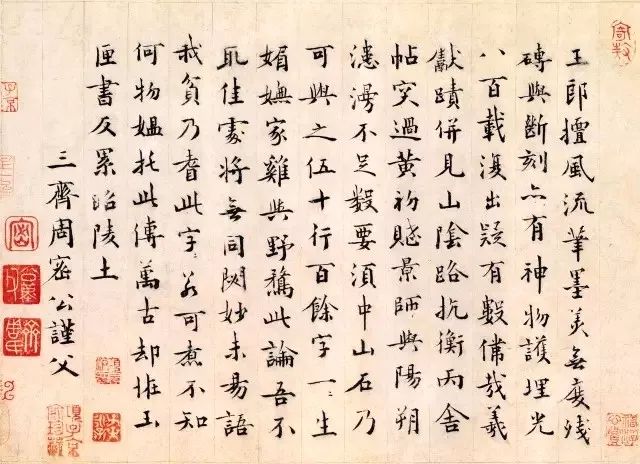 王郎擅風流筆墨美無度殘
磚與斷刻亦有神物護埋光
八百載復出疑有數偉哉羲
獻蹟併見山陰路抗衡兩舍
帖突過黃初賦景師與陽朔
漶漫不足數要須中山石乃
可與之伍十行百餘字一〻生
媚嫵家雞與野鶩此論吾不
取佳處將無同妙未易語
我貧乃耆此字若可煮不知
何物媼托此傳萬古却恠玉
匣書反累昭陵土
三齊周密公謹父